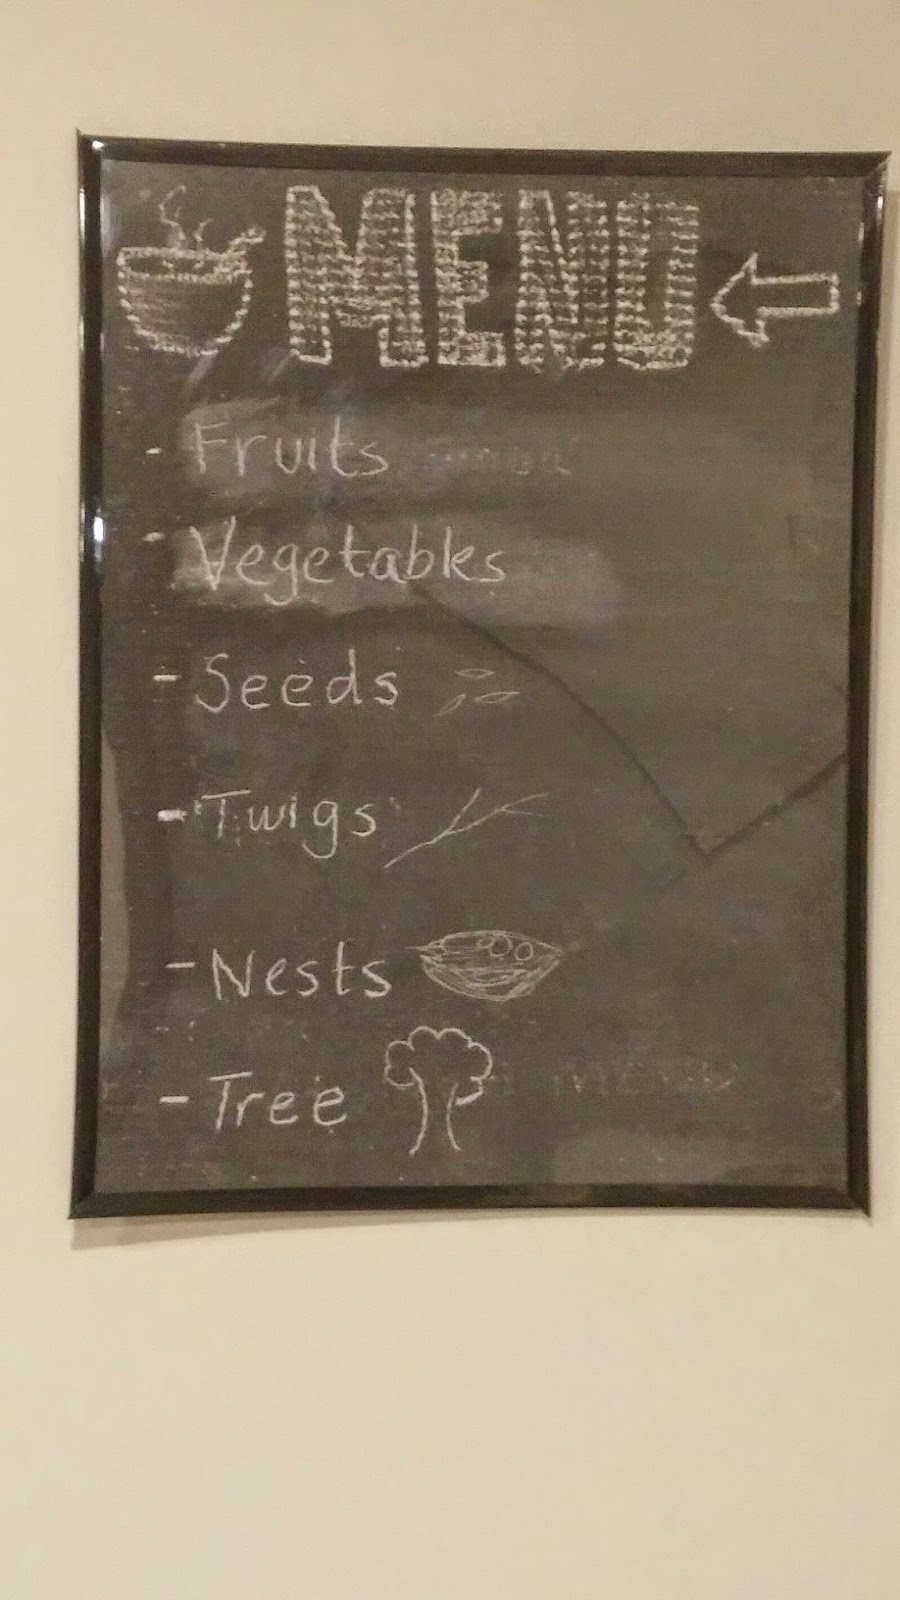 MENU
- Fruits
- Vegetables
- Seeds
- Twigs
- Nests
- Tree